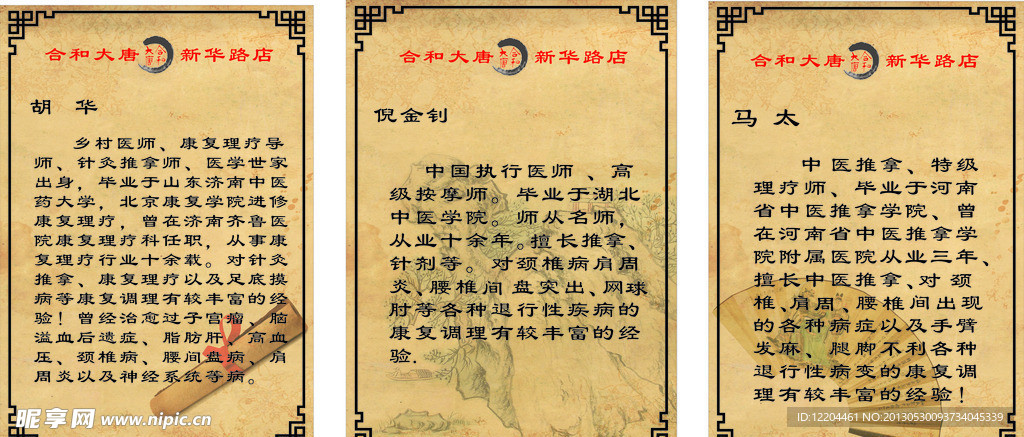 合和大唐 大唐合和 新华路店
胡 华
乡村医师、康复理疗导
师、针灸推拿师、医学世家
出身，毕业于山东济南中医
药大学，北京康复学院进修
康复理疗，曾在济南齐鲁医
院康复理疗科任职，从事康
复理疗行业十余载。对针灸
推拿、康复理疗以及足底摸
病等康复调理有较丰富的经
验！曾经治愈过子宫瘤、脑
溢血后遗症、脂肪肝、高血
压、颈椎病、腰间盘病、肩
周炎以及神经系统等病。
合和大唐 大唐合和 新华路店
倪金钊
中国执行医师 、高
级按摩师。毕业于湖北
中医学院。师从名师，
从业十余年。擅长推拿、
针剂等。对颈椎病肩周
炎、腰椎间盘突出、网球
肘等各种退行性疾病的
康复调理有较丰富的经
验.
合和大唐 大唐合和 新华路店
马 太
中医推拿、特级
理疗师、毕业于河南
省中医推拿学院、曾
在河南省中医推拿学
院附属医院从业三年、
擅长中医推拿、对 颈
椎、肩周、腰椎间出现
的各种病症以及手臂
发麻、腿脚不利各种
退行性病变的康复调
理有较丰富的经验！
昵享网 www.nipic.cn
ID:12204461 NO:20130530093734045339